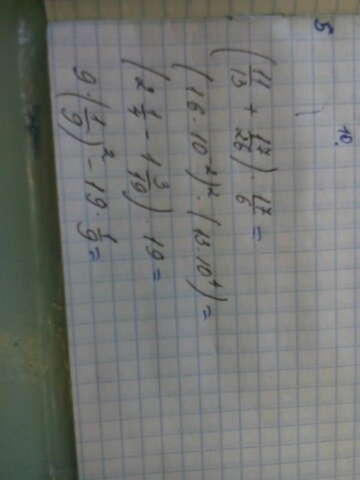 10.
5
(11/13 + 17/26) · 17/6 =
(16·10⁻²)² · (13·10⁴) =
(2 1/4 - 1 3/19) · 19 =
9·(1/9)² - 19·1/9 =